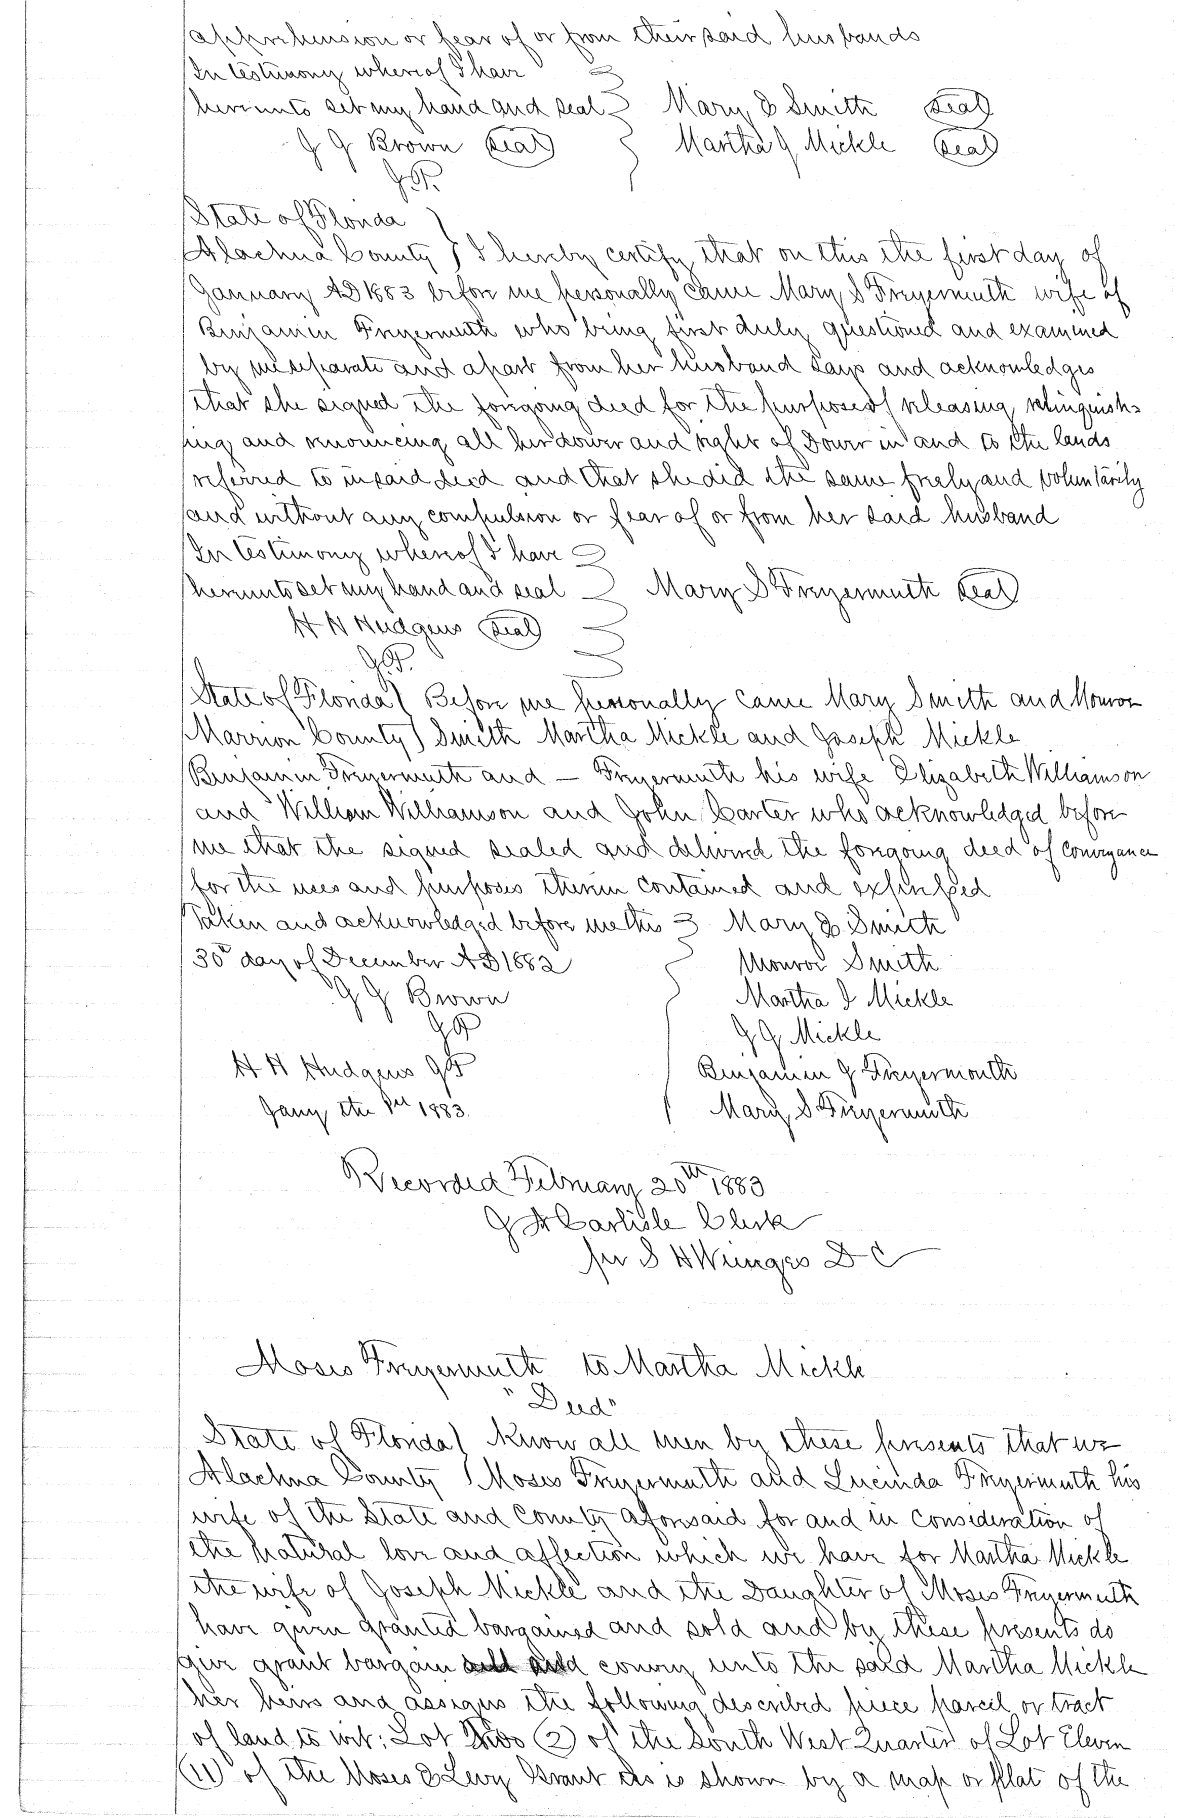 apprehension or fear of or from their said husbands
In testimony whereof I have
hereunto set my hand and seal Mary E Smith Seal
J J Brown Seal Martha J Mickle Seal
J.P.
State of Florida
Alachua County I hereby certify that on this the first day of
January AD 1883 before me personally came Mary S Freyermuth wife of
Benjamin Freyermuth who being first duly questioned and examined
by me separate and apart from her husband says and acknowledges
that she signed the foregoing deed for the purpose of releasing relinquish=
ing and renouncing all her dower and right of Dower in and to the lands
referred to in said deed and that she did the same freely and voluntarily
and without any compulsion or fear of or from her said husband
In testimony whereof I have
hereunto set my hand and seal Mary S Freyermuth Seal
H H Hudgens Seal
J.P.
State of Florida Before me personally came Mary Smith and Monroe
Marrion County Smith Martha Mickle and Joseph Mickle
Benjamin Freyermuth and — Freyermuth his wife Elizabeth Williamson
and William Williamson and John Carter who acknowledged before
me that the signed sealed and delivered the foregoing deed of conveyance
for the uses and purposes therein contained and expressed
Taken and acknowledged before me this Mary E Smith
30th day of December AD 1882 Monroe Smith
J J Brown Martha J Mickle
JP J J Mickle
H H Hudgens JP Benjamin J Freyermouth
Jany the 1st 1883. Mary S Freyermuth
Recorded February 20th 1883
J A Carlisle Clerk
per S H Wienges D C
Moses Freyermuth to Martha Mickle
"Deed"
State of Florida Know all men by these presents that we
Alachua County Moses Freyermuth and Lucinda Freyermuth his
wife of the State and County aforesaid for and in consideration of
the natural love and affection which we have for Martha Mickle
the wife of Joseph Mickle and the Daughter of Moses Freyermuth
have given granted bargained and sold and by these presents do
give grant bargain and convey unto the said Martha Mickle
her heirs and assigns the following described piece parcel or tract
of land to wit: Lot Two (2) of the South West Quarter of Lot Eleven
(11) of the Moses E Levy Grant as is shown by a map or plat of the